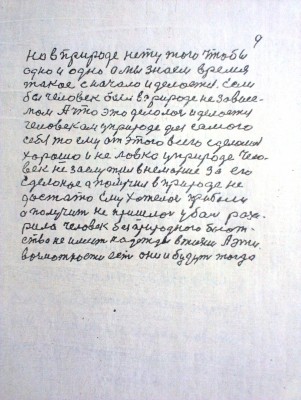 9
но в природе нету того чтобы
одно и одно а мы знаем время
такое сначало и делается. Если
бы человек был в природе не зависе-
мом А то это делалос и делаетси
человеком и природе для самого
себя то ему от этого всего сделали
хорошо и не ловко и природе Чело-
век не заслужил внемание за его
сделоное а получил в природе не
достато ему хотелос прибыли
а получить не пришлос убал разо-
рила человек безприродного бюот-
ство не имеит надежды в жизни А эти
вочмотности есть они и будут тогдо